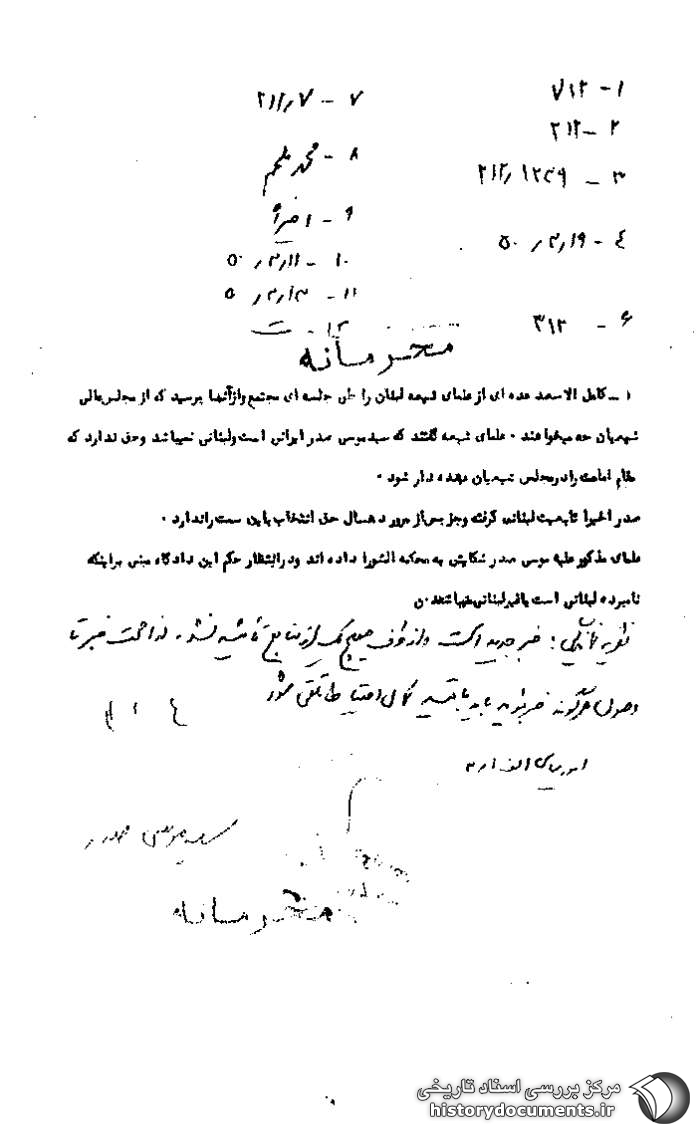 ۱ - ۷۱۲
۲ - ۲۱۲
۳ - ۲۱۲/۱۲۴۹
۴ - ۵۰/۳/۱۹
۶ - ۳۱۲
۷ - ۲۱۲/۷
۸ - محمد ملحم
۹ - اخیراً
۱۰ - ۵۰/۳/۱۱
۱۱ - ۵۰/۳/۱۳
۱۲ - ت
محرمانه
۱ - کامل الاسعد عده ای از علمای شیعه لبنان را طی جلسه ای مجتمع و از آنها پرسید که از مجلس عالی
شیعیان چه میخواهند . علمای شیعه گفتند که سید موسی صدر ایرانی است و لبنانی نمیباشد و حق ندارد که
مقام امامت را در مجلس شیعیان عهده دار شود .
صدر اخیرا تابعیت لبنانی گرفته و جز پس از مرور ده سال حق انتخاب باین سمت را ندارد .
علمای مذکور علیه موسی صدر شکایتی به محکمه الشورا داده اند و در انتظار حکم این دادگاه مبنی بر اینکه
نامبرده لبنانی است یا غیر لبنانی میباشند . ن
نظریه : خبر جدید است و از طرف هیچ یک از منابع تائید نشد . صحت خبر تا
وصول هرگونه خبر باید با کمال احتیاط تلقی شود
سید موسی صدر
محرمانه
مرکز بررسی اسناد تاریخی
historydocuments.ir